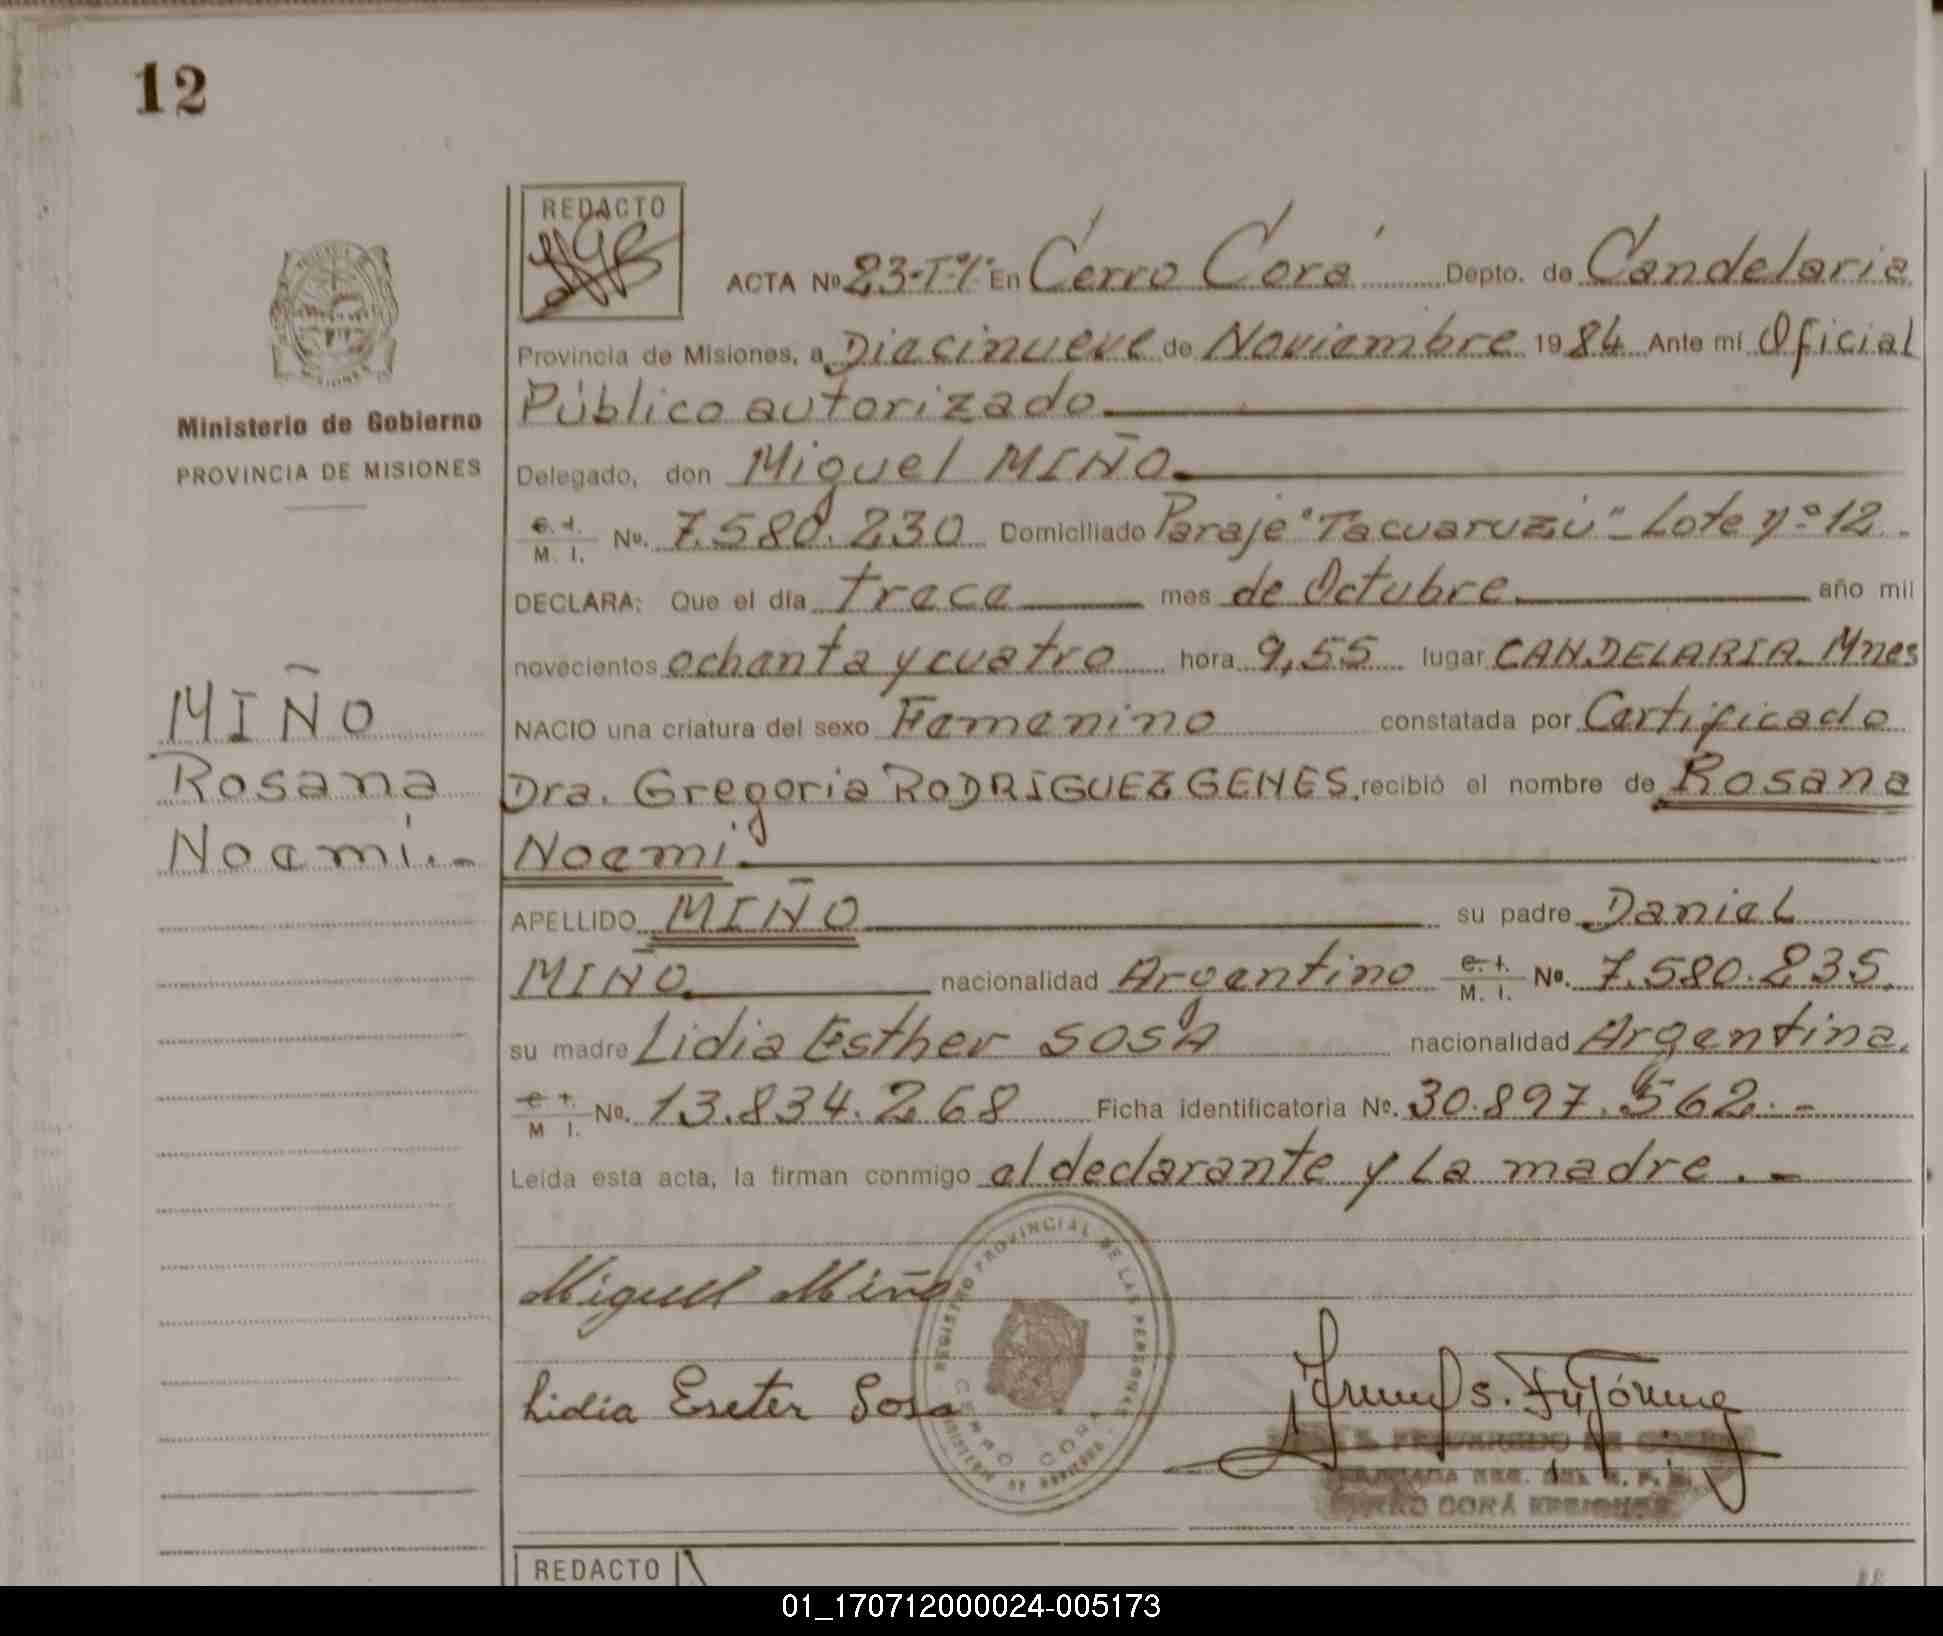 12
REDACTO
ACTA Nº 23-Tº1º En Cerro Corá Depto. de Candelaria
Provincia de Misiones, a Diecinueve de Noviembre 1984 Ante mí Oficial
Público autorizado
Ministerio de Gobierno
PROVINCIA DE MISIONES
Delegado, don Miguel MIÑO
C. I. M. I. Nº. 7.580.230 Domiciliado Paraje "Tacuaruzú" - Lote nº 12.
DECLARA: Que el día trece mes de Octubre año mil
novecientos ochenta y cuatro hora 9,55 lugar CANDELARIA Mnes
NACIO una criatura del sexo Femenino constatada por Certificado
Dra. Gregoria RODRIGUEZ GENES. recibió el nombre de Rosana
Noemi
MIÑO
Rosana
Noemí.-
APELLIDO MIÑO su padre Daniel
MIÑO nacionalidad Argentino C. I. M. I. Nº. 7.580.235.
su madre Lidia Esther SOSA nacionalidad Argentina.
C. I. M. I. Nº. 13.834.268 Ficha identificatoria Nº. 30.897.562.-
Leída esta acta, la firman conmigo el declarante y la madre.-
Miguel Miño
Lidia Eseter Sosa
REGISTRO PROVINCIAL DE LAS PERSONAS
CERRO CORA
CORÁ
REDACTO
01_170712000024-005173